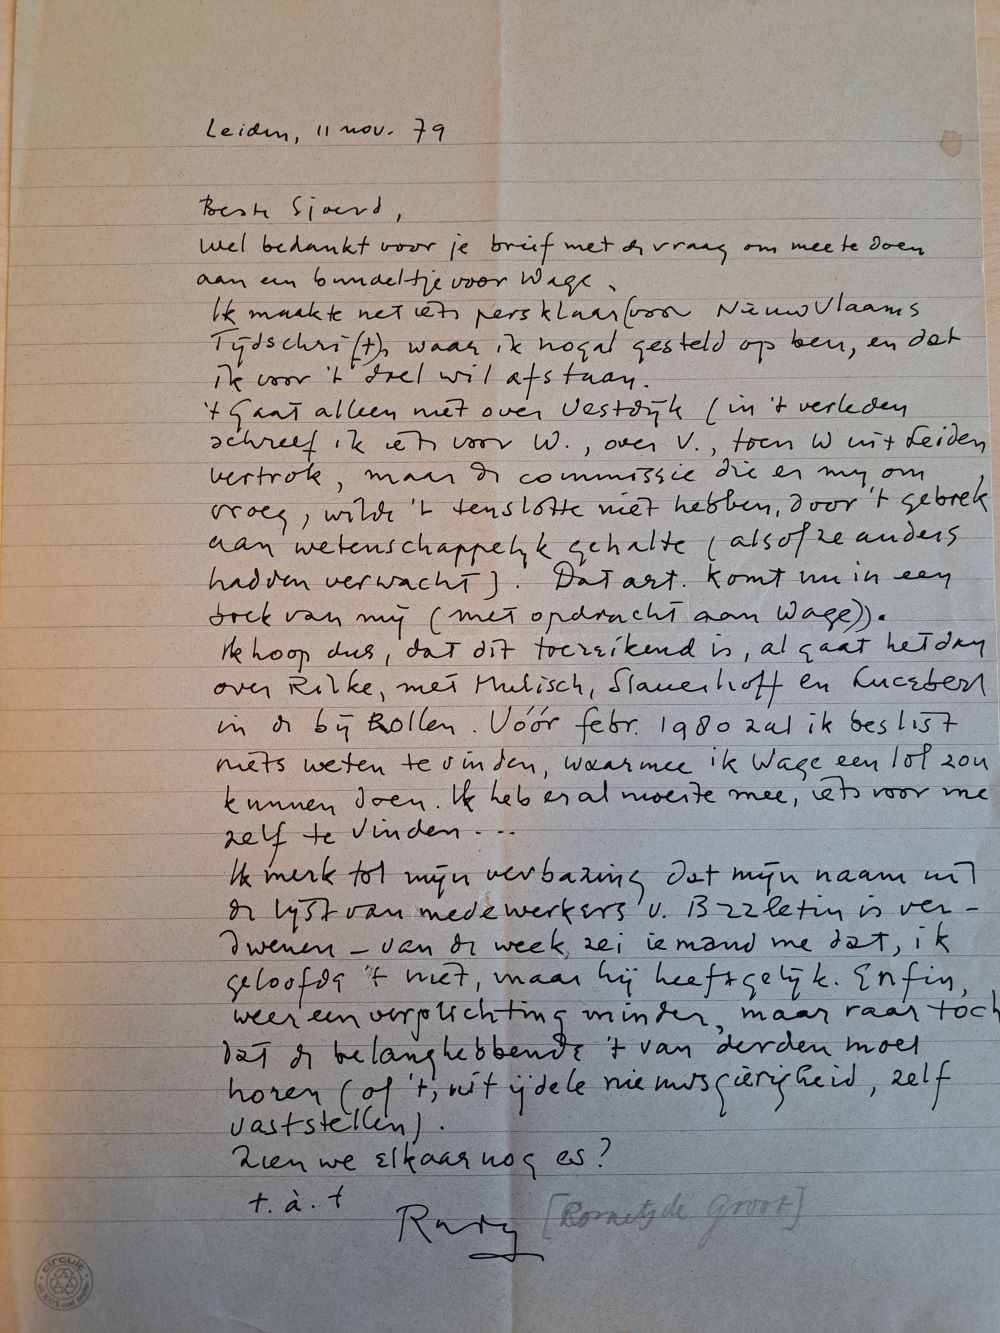 Leiden, 11 nov. 79
Beste Sjoerd,
Wel bedankt voor je brief met de vraag om mee te doen
aan een bundeltje voor Wage.
Ik maakte net iets persklaar (voor Nieuw Vlaams
Tijdschrift), waar ik nogal gesteld op ben, en dat
ik voor 't doel wil afstaan.
't Gaat alleen niet over Vestdijk (in 't verleden
schreef ik iets voor W., over V., toen W uit Leiden
vertrok, maar de commissie die er mij om
vroeg, wilde 't tenslotte niet hebben, door 't gebrek
aan wetenschappelijk gehalte (alsof ze anders
hadden verwacht). Dat art. komt nu in een
boek van mij (met opdracht aan Wage)).
Ik hoop dus, dat dit toereikend is, al gaat het dan
over Rilke, met Mulisch, Slauerhoff en Lucebert
in de bijrollen. Vóór febr. 1980 zal ik beslist
niets weten te vinden, waarmee ik Wage een lol zou
kunnen doen. Ik heb er al moeite mee, iets voor me
zelf te vinden...
Ik merk tot mijn verbazing dat mijn naam uit
de lijst van medewerkers v. Bzzletin is ver-
dwenen – van de week zei iemand me dat, ik
geloofde 't niet, maar hij heeft gelijk. Enfin,
weer een verplichting minder, maar raar toch
dat de belanghebbende 't van derden moet
horen (of 't, uit ijdele nieuwsgierigheid, zelf
vaststellen).
Zien we elkaar nog es?
t. à. t
Rudy [Cornets de Groot]
circuit